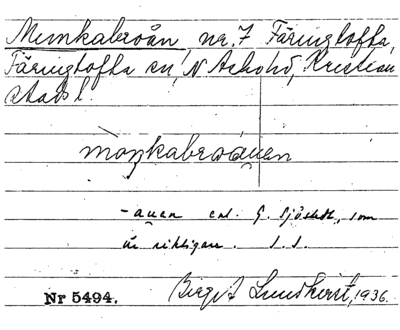 Munkabroån, nr. 7 Färingtofta,
Färingtofta sn, N Åsbohd, Kristian
stads l.
moŋkabroáu̯en
-au̯en enl. G. Sjöstedt, som
är riktigare. I. I.
Nr 5494. Birgit Lundkvist, 1936.